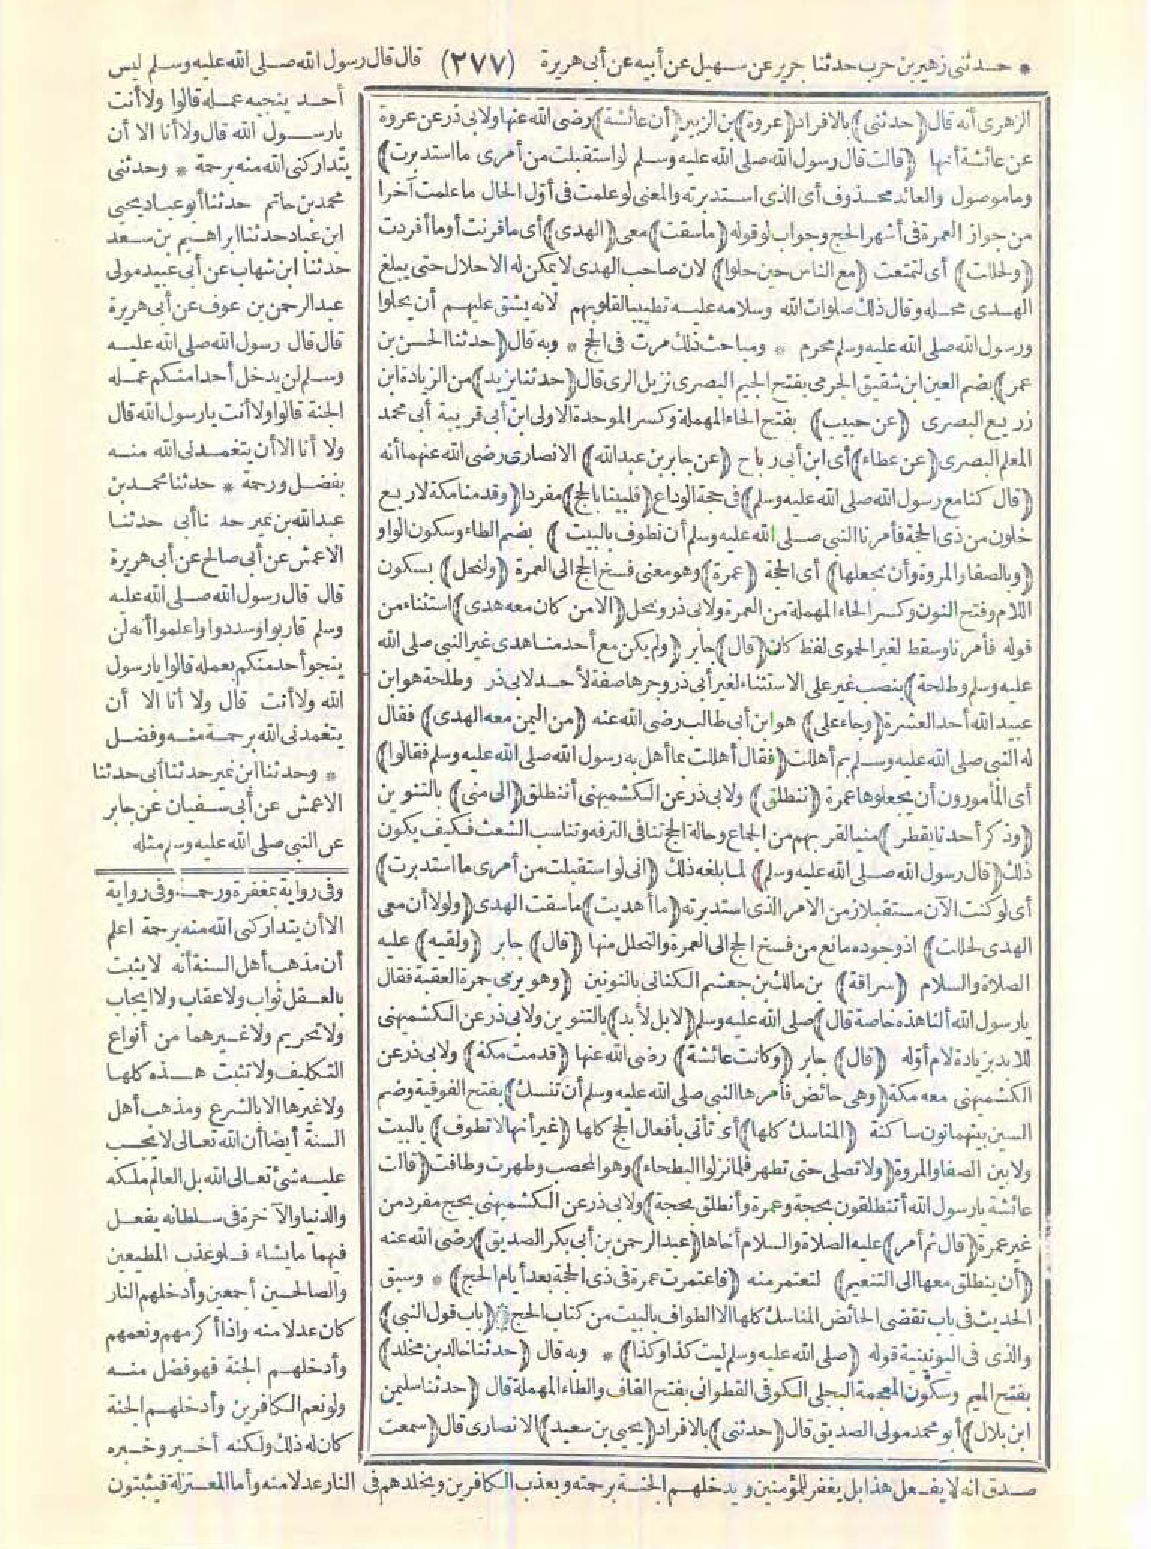 * حدثنى زهير بن حرب حدثنا جرير عن سهيل عن أبيه عن أبى هريرة (٢٧٧) قال قال رسول الله صلى الله عليه وسلم ليس
أحد ينجيه عمله قالوا ولا أنت
يا رسول الله قال ولا أنا الا أن
يتداركنى الله منه برحمة * وحدثنى
محمد بن حاتم حدثنا أبو عباد يحيى
ابن عباد حدثنا ابراهيم بن سعد
حدثنا ابن شهاب عن أبى عبيد مولى
عبد الرحمن بن عوف عن أبى هريرة
قال قال رسول الله صلى الله عليه
وسلم لن يدخل أحدا منكم عمله
الجنة قالوا ولا أنت يا رسول الله قال
ولا أنا الا أن يتغمدنى الله منه
بفضل ورحمة * حدثنا محمد بن
عبد الله بن نمير حدثنا أبى حدثنا
الاعمش عن أبى صالح عن أبى هريرة
قال قال رسول الله صلى الله عليه
وسلم قاربوا وسددوا واعلموا أنه لن
ينجو أحد منكم بعمله قالوا يا رسول
الله ولا أنت قال ولا أنا الا أن
يتغمدنى الله برحمة منه وفضل
* وحدثنا ابن نمير حدثنا أبى حدثنا
الاعمش عن أبى سفيان عن جابر
عن النبى صلى الله عليه وسلم مثله
وفى رواية بمغفرة ورحمة وفى رواية
الا أن يتداركنى الله منه برحمة اعلم
أن مذهب أهل السنة أنه لا يثبت
بالعقل ثواب ولا عقاب ولا ايجاب
ولا تحريم ولا غيرهما من أنواع
التكليف ولا تثبت هذه كلها
ولا غيرها الا بالشرع ومذهب أهل
السنة أيضا أن الله تعالى لا يجب
عليه شئ تعالى الله بل العالم ملكه
والدنيا والآخرة فى سلطانه يفعل
فيهما ما يشاء فلو عذب المطيعين
والصالحين أجمعين وأدخلهم النار
كان عدلا منه واذا أكرمهم ونعمهم
وأدخلهم الجنة فهو فضل منه
ولو نعم الكافرين وأدخلهم الجنة
كان له ذلك ولكنه أخبر وخبره
الزهرى أنه قال (حدثنى) بالافراد (عروة) بن الزبير (أن عائشة) رضى الله عنها ولابى ذر عن عروة
عن عائشة أنها (قالت قال رسول الله صلى الله عليه وسلم لو استقبلت من أمرى ما استدبرت)
وما موصول والعائد محذوف أى الذى استدبرته والمعنى لو علمت فى أول الحال ما علمت آخرا
من جواز العمرة فى أشهر الحج وجواب لو قوله (ما سقت) معى (الهدى) أى ما قرنت أو ما أفردت
(ولحللت) أى لتمتعت (مع الناس حين حلوا) لان صاحب الهدى لا يمكن له الاحلال حتى يبلغ
الهدى محله وقال ذلك صلوات الله وسلامه عليه تطييبا لقلوبهم لانه يشق عليهم أن يحلوا
ورسول الله صلى الله عليه وسلم محرم * ومباحث ذلك مرت فى الحج * وبه قال (حدثنا الحسن بن
عمر) بضم العين ابن شقيق الجرمى بفتح الجيم البصرى نزيل الرى قال (حدثنا يزيد) من الزيادة ابن
زريع البصرى (عن حبيب) بفتح الحاء المهملة وكسر الموحدة الاولى ابن أبى قريبة أبى محمد
المعلم البصرى (عن عطاء) أى ابن أبى رباح (عن جابر بن عبد الله) الانصارى رضى الله عنهما أنه
(قال كنا مع رسول الله صلى الله عليه وسلم) فى حجة الوداع (فلبينا بالحج) مفردا (وقدمنا مكة لاربع
خلون من ذى الحجة فأمرنا النبى صلى الله عليه وسلم أن نطوف بالبيت) بضم الطاء وسكون الواو
(وبالصفا والمروة وأن نجعلها) أى الحجة (عمرة) وهو معنى فسخ الحج الى العمرة (ولنحل) بسكون
اللام وفتح النون وكسر الحاء المهملة من العمرة ولابى ذر ونحل (الا من كان معه هدى) استثناء من
قوله فأمرنا وسقط لغير الحموى لفظ كان (قال) جابر (ولم يكن مع أحد منا هدى غير النبى صلى الله
عليه وسلم وطلحة) بنصب غير على الاستثناء لغير أبى ذر وجرها صفة لأحد لابى ذر وطلحة هو ابن
عبيد الله أحد العشرة (وجاء على) هو ابن أبى طالب رضى الله عنه (من اليمن معه الهدى) فقال
له النبى صلى الله عليه وسلم بم أهللت (فقال أهللت بما أهل به رسول الله صلى الله عليه وسلم فقالوا)
أى المأمورون أن يجعلوها عمرة (ننطلق) ولابى ذر عن الكشميهنى أننطلق (الى منى) بالتنوين
(وذكر أحدنا يقطر) منيا لقربهم من الجماع وحالة الحج تنافى الترفه وتناسب الشعث فكيف يكون
ذلك (قال رسول الله صلى الله عليه وسلم) لما بلغه ذلك (انى لو استقبلت من أمرى ما استدبرت)
أى لو كنت الآن مستقبلا زمن الامر الذى استدبرته (ما أهديت) ما سقت الهدى (ولولا أن معى
الهدى لحللت) اذ وجوده مانع من فسخ الحج الى العمرة والتحلل منها (قال) جابر (ولقيه) عليه
الصلاة والسلام (سراقة) بن مالك بن جعشم الكنانى بالنونين (وهو يرمى جمرة العقبة فقال
يا رسول الله ألنا هذه خاصة قال) صلى الله عليه وسلم (لا بل لأبد) بالتنوين ولابى ذر عن الكشميهنى
للابد بزيادة لام أوله (قال) جابر (وكانت عائشة) رضى الله عنها (قدمت مكة) ولابى ذر عن
الكشميهنى معه مكة (وهى حائض فأمرها النبى صلى الله عليه وسلم أن تنسك) بفتح الفوقية وضم
السين بينهما نون ساكنة (المناسك كلها) أى تأتى بأفعال الحج كلها (غير أنها لا تطوف) بالبيت
ولا بين الصفا والمروة (ولا تصلى حتى تطهر فلما نزلوا البطحاء) وهو المحصب وطهرت وطافت (قالت
عائشة يا رسول الله أتنطلقون بحجة وعمرة وأنطلق بحجة) ولابى ذر عن الكشميهنى بحج مفرد من
غير عمرة (قال ثم أمر) عليه الصلاة والسلام أخاها (عبد الرحمن بن أبى بكر الصديق) رضى الله عنه
(أن ينطلق معها الى التنعيم) لتعتمر منه (فاعتمرت عمرة فى ذى الحجة بعد أيام الحج) * وسبق
الحديث فى باب تقضى الحائض المناسك كلها الا الطواف بالبيت من كتاب الحج * (باب قول النبى)
والذى فى اليونينية قوله (صلى الله عليه وسلم ليت كذا وكذا) * وبه قال (حدثنا خالد بن مخلد)
بفتح الميم وسكون المعجمة البجلى الكوفى القطوانى بفتح القاف والطاء المهملة قال (حدثنا سليمن
ابن بلال) أبو محمد مولى الصديق قال (حدثنى) بالافراد (يحيى بن سعيد) الانصارى قال (سمعت
صدق انه لا يفعل هذا بل يغفر للمؤمنين ويدخلهم الجنة برحمته ويعذب الكافرين ويخلدهم فى النار عدلا منه وأما المعتزلة فيثبتون